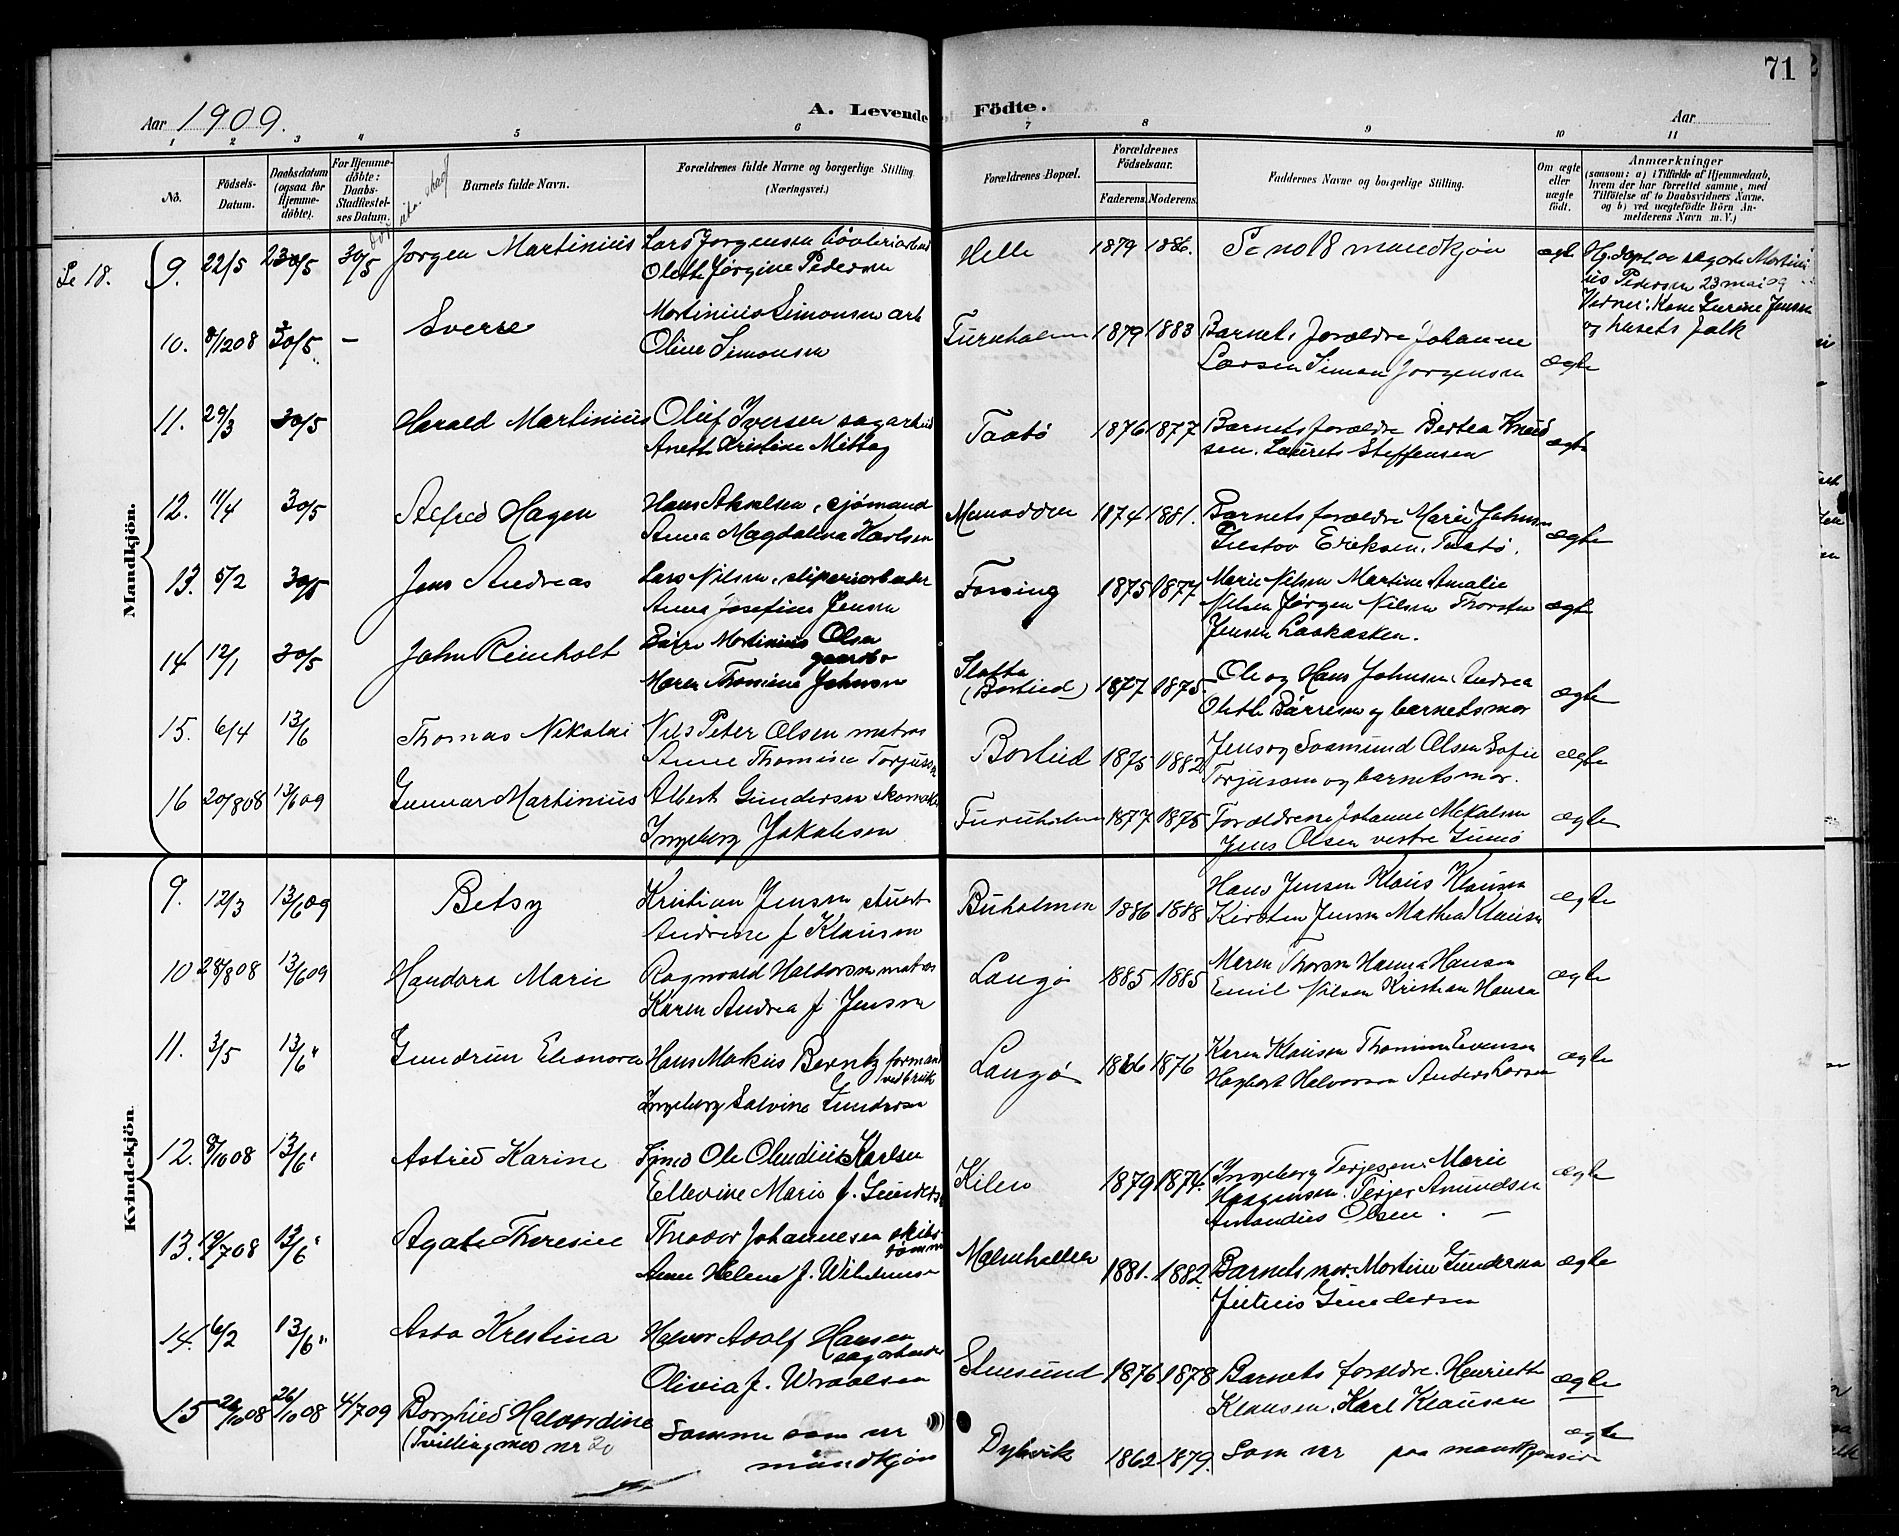 71
Aar 1909.
A. Levende Födte.
Aar
1 2 3 4 5 6 7 8 9 10 11
No.
Födsels-Datum.
Daabsdatum (ogsaa for Hjemme-döbte).
For Hjemme-döbte: Daabs-Stadfæstel-ses Datum.
Barnets fulde Navn.
Forældrenes fulde Navne og borgerlige Stilling (Næringsvei.)
Forældrenes Bopæl.
Forældrenes Födselsaar.
Faderens. Moderens.
Faddernes Navne og borgerlige Stilling.
Om ægte eller uægte födt.
Anmærkninger
(saasom: a) i Tilfælde af Hjemmedaab, hvem der har forrettet samme, med Tilföielse af to Daabsvidners Navne. og b) ved uægtefödte Börn An-melderens Navn m. V.)
Mandkjön.
Se 18.
9. 22/5 30/5 30/5 Jørgen Martinius Lars Jørgensen
Oleth Jørgine Pedersen
Helle 1879 1886. Se no 18 mandkjøn ægte
Hj. døpt av Martinius Pedersen 23 mai 09
Vidner: Kone Gurine Jensen og husets folk
10. 8/12 08 30/5 — Sverre Martinius Simonsen arb
Oline Simonsen
Furuholmen 1879 1883 Barnets forældre Johanne
Larsen Simon Jørgensen ægte
11. 29/3 30/5 Harald Martinius Oluf Iversen sagarbeid
Aneth Kristine Mittag
Taatø 1876 1877 Barnets forældre Bertea Knud
sen. Laurits Steffensen ægte
12. 11/4 30/5 Alfred Hagen Hans Akselsen, sjømand
Anna Magdalena Karlsen
1874 1881. Barnets forældre Marie Johnsen
Gustav Eriksen, Taatø. ægte
13. 5/2 30/5 Jens Andreas Lars Nilsen, sliperiarbeider
Anna Josefine Jensen
Fossing 1875 1877 Marie Nilsen Martine Amalie
Nilsen Jørgen Nilsen Thorsten
Jensen Laskasken. ægte
14 12/1 30/5 John Reinholt Børre Martinius Olsen
gaardbr
Maren Thomine Johnsen
Slotta
(Borteid) 1877 1875 Ole og Hans Johnsen, Andrea
Oleth Børresen og barnets mor ægte
15. 6/4 13/6 Thomas Nikolai Nils Peter Olsen matros
Anne Thomine Torjussen
Borteid 1875 1882 Jens og Saamund Olsen Sofie
Torjussen og barnets mor. ægte
16 20/8 08 13/6 09 Gunnar Martinius Albert Gundersen skomaker
Ingeborg Jakobsen
Furuholmen 1877 1875 Forældrene Johanne Mikalsen
Jens Olsen vestre Gumø ægte
Kvindekjön.
9. 12/3 13/6 09 Betsy Kristian Jensen stuert
Andrine f Klausen
Buholmen 1886 1888 Hans Jensen Klaus Klausen
Kirsten Jensen Mathea Klausen ægte
10 28/8 08 13/6 09 Haudara Marie Ragnvald Haldorsen matros
Karen Andrea f. Jensen
Langø 1885 1885 Maren Thorsen Hanna Hansen
Emil Nilsen Kristian Hansen ægte
11. 3/5 13/6 " Gundrun Elianora Hans Markus Berntz formand
ved bruk
Ingeborg Salvine Gundersen
Langø 1866 1876 Karen Klausen Thomine Evensen
Hagbart Halvorsen Anders Larsen ægte
12. 8/10 08 13/6 " Astrid Karine Ole Olendius Karlsen
Ellevine Marie f. Gunders
Kilen 1879 1874. Ingeborg Terjesen. Marie
Haagensen. Terjer Amundsen
Amandus Olsen. — ægte
13. 19/7 08 13/6 " Agate Theresie Theodor Johannesen skibs
tømmer
Anne Helene f. Wilhelmsen
Malmhellen 1881. 1882. Barnets mor. Martine Gundersen
Julius Gundersen ægte
14. 6/2 13/6 " Asta Kristina Halvor Adolf Hansen
sagarbeider
Olivia f. Wraalsen
Stusund 1876 1878 Barnets forældre. Henriette
Klausen. Karl Klausen ægte
15 26/10 08 26/10 08 4/7 09 Borghild Halvordine
(Tvilling med nr 20
Samme som nr
mandkjøn
Dybvik 1862 1879. Som nr paa mandkjønsid ægte